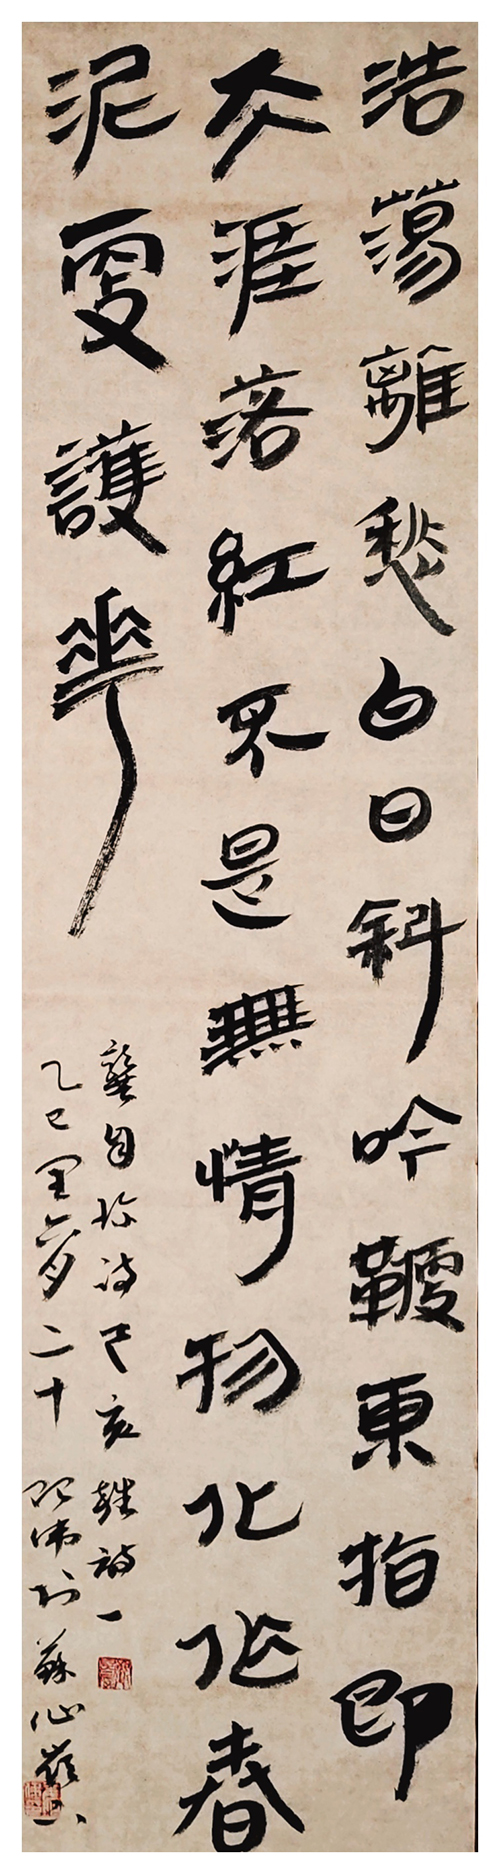 浩蕩離愁白日斜吟鞭東指即
天涯落紅不是無情物化作春
泥更護華
龔自珍詩己亥雜詩一
乙巳閏六月二十偉於蘇仙嶺下